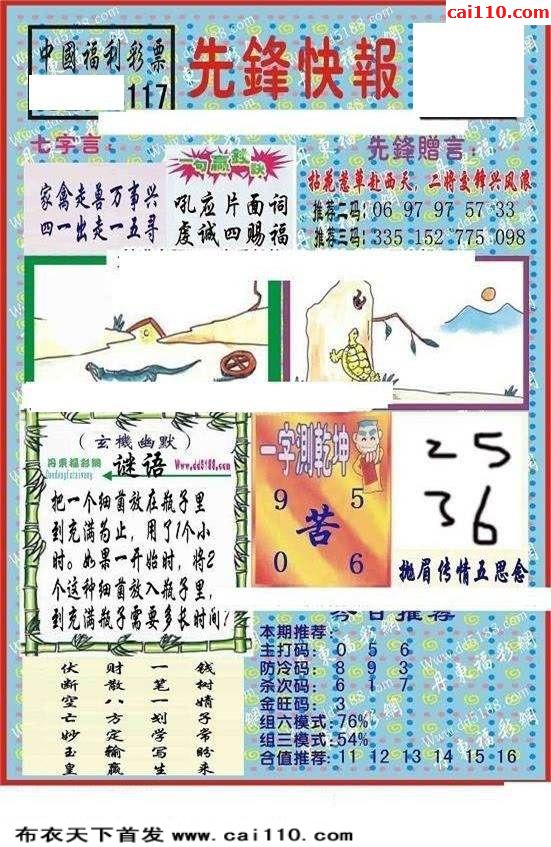 cai110.com
中國福利彩票
117
先鋒快報
七字言：
家禽走兽万事兴
四一出走一五寻
一句赢钱诀
吼应片面词
虔诚四赐福
先鋒贈言：
拈花惹草赴西天，二将交锋兴风浪
推荐二码：06 97 97 57 33
推荐三码：335 152 775 098
（玄機幽默）
丹東福彩網
谜语
Www.dd5188.com
把一个细菌放在瓶子里
到充满为止，用了1个小
时。如果一开始时，将2
个这种细菌放入瓶子里，
到充满瓶子需要多长时间？
一字測乾坤
9 5
苦
0 6
25
36
抛眉传情五思念
今日推荐
本期推荐：
主打码：0 5 6
防冷码：8 9 3
杀次码：6 1 7
金旺码：3
组六模式：76%
组三模式：54%
合值推荐：11 12 13 14 15 16
伏断空亡妙玉皇
财散八方定输赢
一笔一划学写生
钱树婧子常盼来
布衣天下首发 www.cai110.com